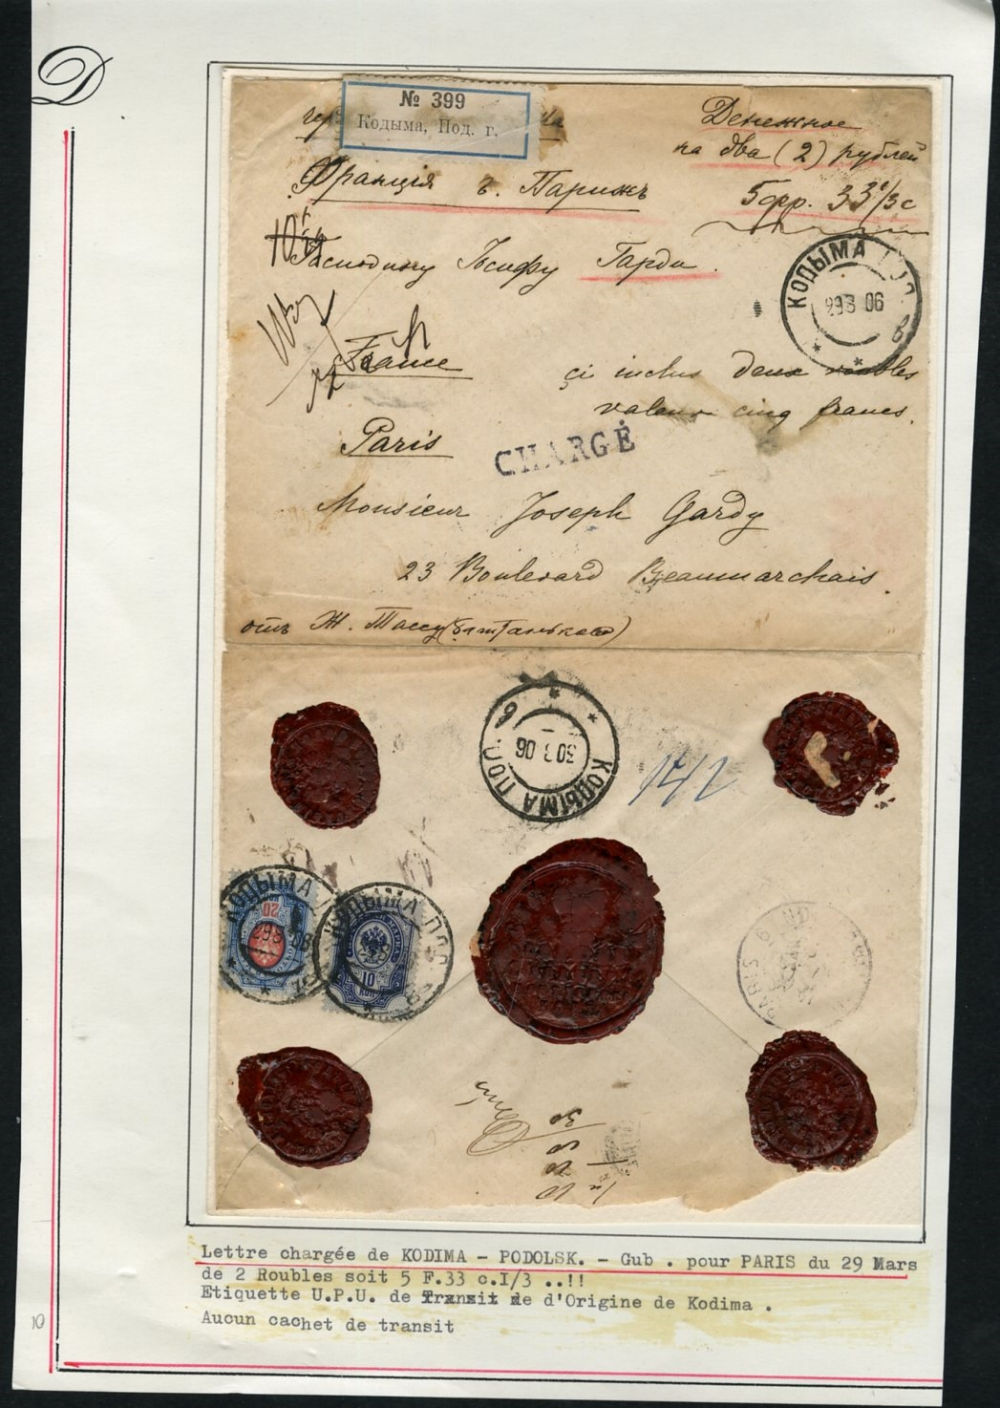 D
№ 399
Кодыма, Под. г.
Денежное
на два (2) рублей
Франція г. Парижъ
5 фр. 33 1/3 с
Господину Іосифу Гарди.
КОДЫМА ПОД.
29 3 06
France
ci inclus deux roubles
valeur cinq francs.
Paris
CHARGÉ
Monsieur Joseph Gardy
23 Boulevard Beaumarchais.
отъ Ж. Тассу
КОДЫМА ПОД.
30 3 06
КОДЫМА
20
КОДЫМА ПОД.
10
PARIS
Lettre chargée de KODIMA - PODOLSK. - Gub . pour PARIS du 29 Mars
de 2 Roubles soit 5 F.33 c.I/3 ..!!
Etiquette U.P.U. de d'Origine de Kodima .
Aucun cachet de transit
10